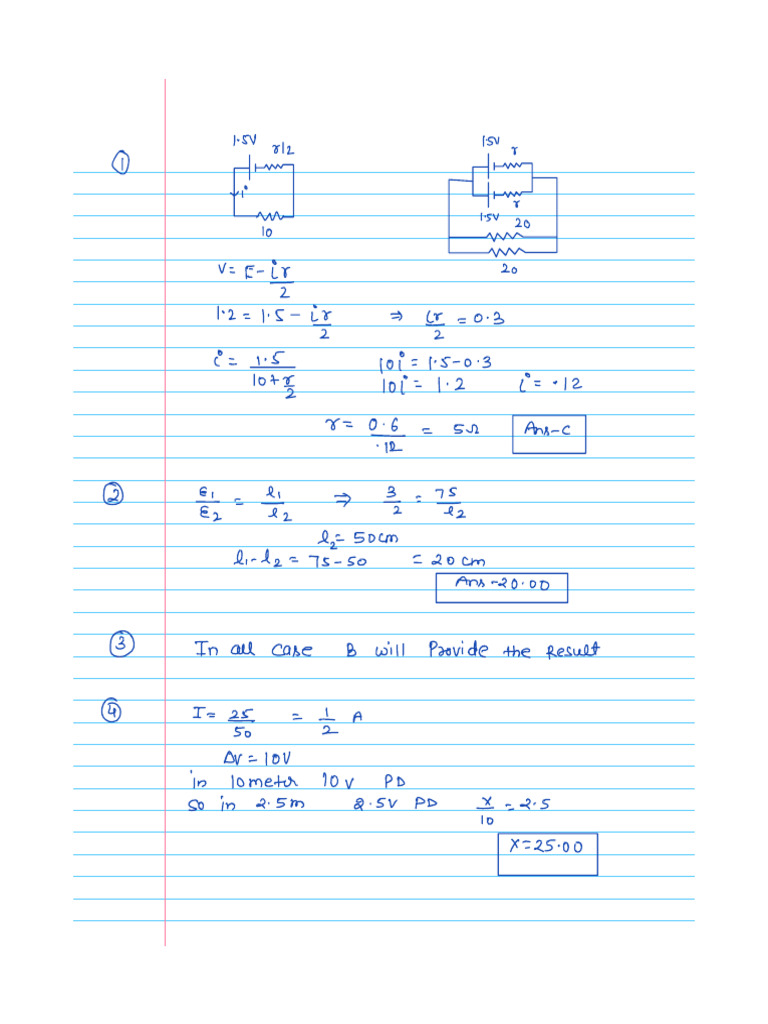 ①
1.5V
r/2
i
10
1.5V
r
r
1.5V
20
20
V = E - ir/2
1.2 = 1.5 - ir/2 ⇒ ir/2 = 0.3
i = 1.5/(10 + r/2) 10i = 1.5 - 0.3
10i = 1.2 i = .12
r = 0.6/.12 = 5Ω Ans-C
② ε1/ε2 = l1/l2 ⇒ 3/2 = 75/l2
l2 = 50cm
l1 - l2 = 75 - 50 = 20 cm
Ans - 20.00
③ In all case B will Provide the Result
④ I = 25/50 = 1/2 A
ΔV = 10V
in 10 meter 10 V PD
So in 2.5m 2.5V PD x/10 = 2.5
x = 25.00